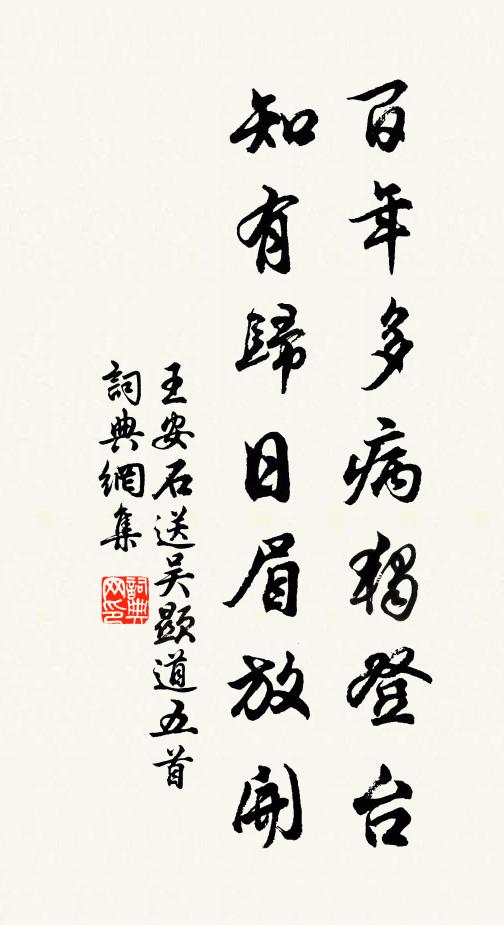 百年多病獨登台
知有歸日眉放開
王安石送吴顯道五首
詞典網集
詞典网印